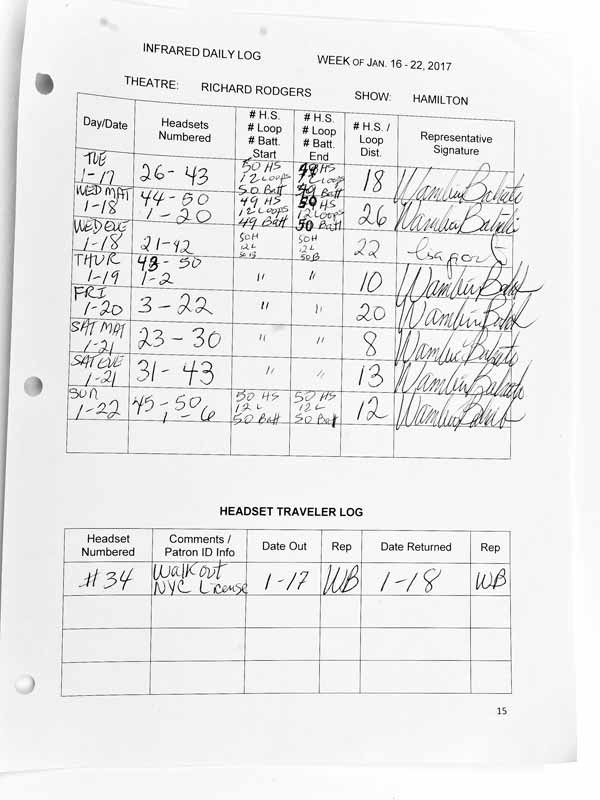 INFRARED DAILY LOG WEEK OF JAN. 16 - 22, 2017
THEATRE: RICHARD RODGERS SHOW: HAMILTON
Day/Date Headsets Numbered # H.S. # Loop # Batt. Start # H.S. # Loop # Batt. End # H.S. / Loop Dist. Representative Signature
TUE 1-17 26-43 50 HS 12 Loops 50 Batt 49 HS 12 Loops 49 Batt 18
WED MAT 1-18 44-50 1-20 49 HS 12 Loops 49 Batt 50 HS 12 Loops 50 Batt 26
WED EVE 1-18 21-42 50H 12L 50B 50H 12L 50B 22
THUR 1-19 43-50 1-2 " " 10
FRI 1-20 3-22 " " 20
SAT MAT 1-21 23-30 " " 8
SAT EVE 1-21 31-43 " " 13
SUN 1-22 45-50 1-6 50 HS 12 L 50 Batt 50 HS 12 L 50 Batt 12
HEADSET TRAVELER LOG
Headset Numbered Comments / Patron ID Info Date Out Rep Date Returned Rep
#34 Walk out NYC License 1-17 WB 1-18 WB
15